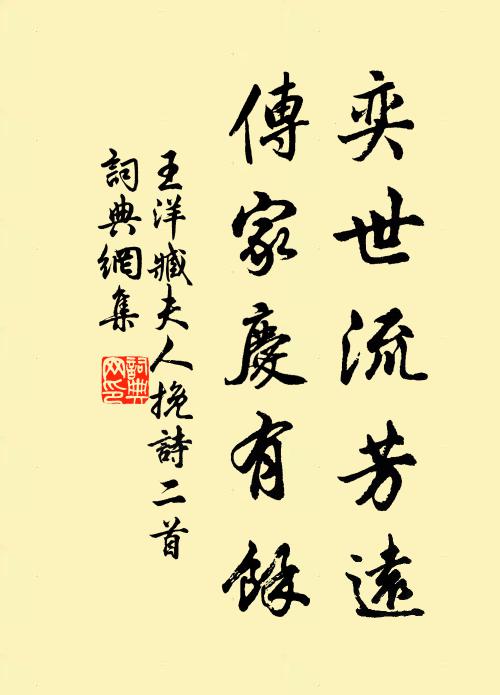 奕世流芳遠
傳家慶有餘
王洋臧夫人挽詩二首
詞典網集
詞典网印